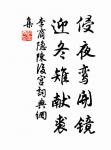 侵夜鸾开镜
迎冬雉献裘
李商隐陈后宫词典网
集